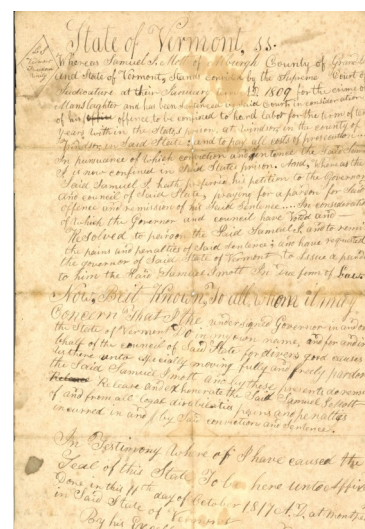 State of Vermont, ss.
Whereas Samuel I. Mott of Alburgh County of Grand
and State of Vermont, Stands convicted by the Supreme Court of
Judicature at their January term 1809 for the crime of
Manslaughter and has been sentenced by said Court in consideration
of his offence to be confined to hard labor for the term of
years within the States prison, at Windsor in the county of
Windsor in Said State, and to pay all costs of prosecution
In pursuance of which conviction and sentence the said Samuel
I is now confined in Said States prison. And, whereas the
Said Samuel I. hath prefered his petition to the Governor
and council of Said State, praying for a pardon for Said
offence and remission of his Said Sentence. In consideration
of which the Governor and council have voted and
Resolved to pardon the Said Samuel I. and to remit
the pains and penalties of Said Sentence; and have requested
the governor of Said State of Vermont to Issue a pardon
to him the Said Samuel I mott in due form of Law.
Now, Be it Known, To all, whom it may
Concern That I the undersigned Governor in and over
the State of Vermont, do in my own name, and for and in
behalf of the council of Said State for divers good causes
us there unto especially moving fully and freely pardon
the Said Samuel I mott and by these presents do remise
Release and exhonorate the Said Samuel I. Mott
of and from all legal disabilities pains and penalties
incurred in and by Said conviction and Sentence.
In Testimony Where of I have caused the
Seal of this State To be here unto affixed
Done, in this 11th day of October 1817 A.D. at montpelier
in Said State of Vermont
By his